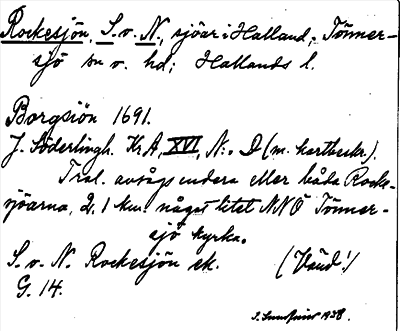 Rockesjön, S. o. N., sjöar i Halland, Tönner-
sjö sn o. hd; Hallands l.
Borgsiön 1691.
J. Söderlingh. K. A, XVI, N:o D (m. kartbeskr.).
Trol. avsågs endera eller båda Rocke-
sjöarna, 2,1 km. något litet NNO Tönner-
sjö kyrka.
S. o. N. Rockesjön ek. (Vänd!)
G. 14.
1938.